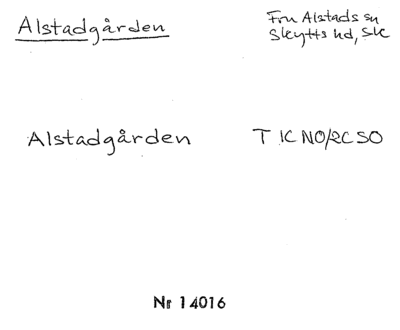 Alstadgården
Fru Alstads sn
Skytts hd, Sk
Alstadgården T 1C NO/2C SO
Nr 14016